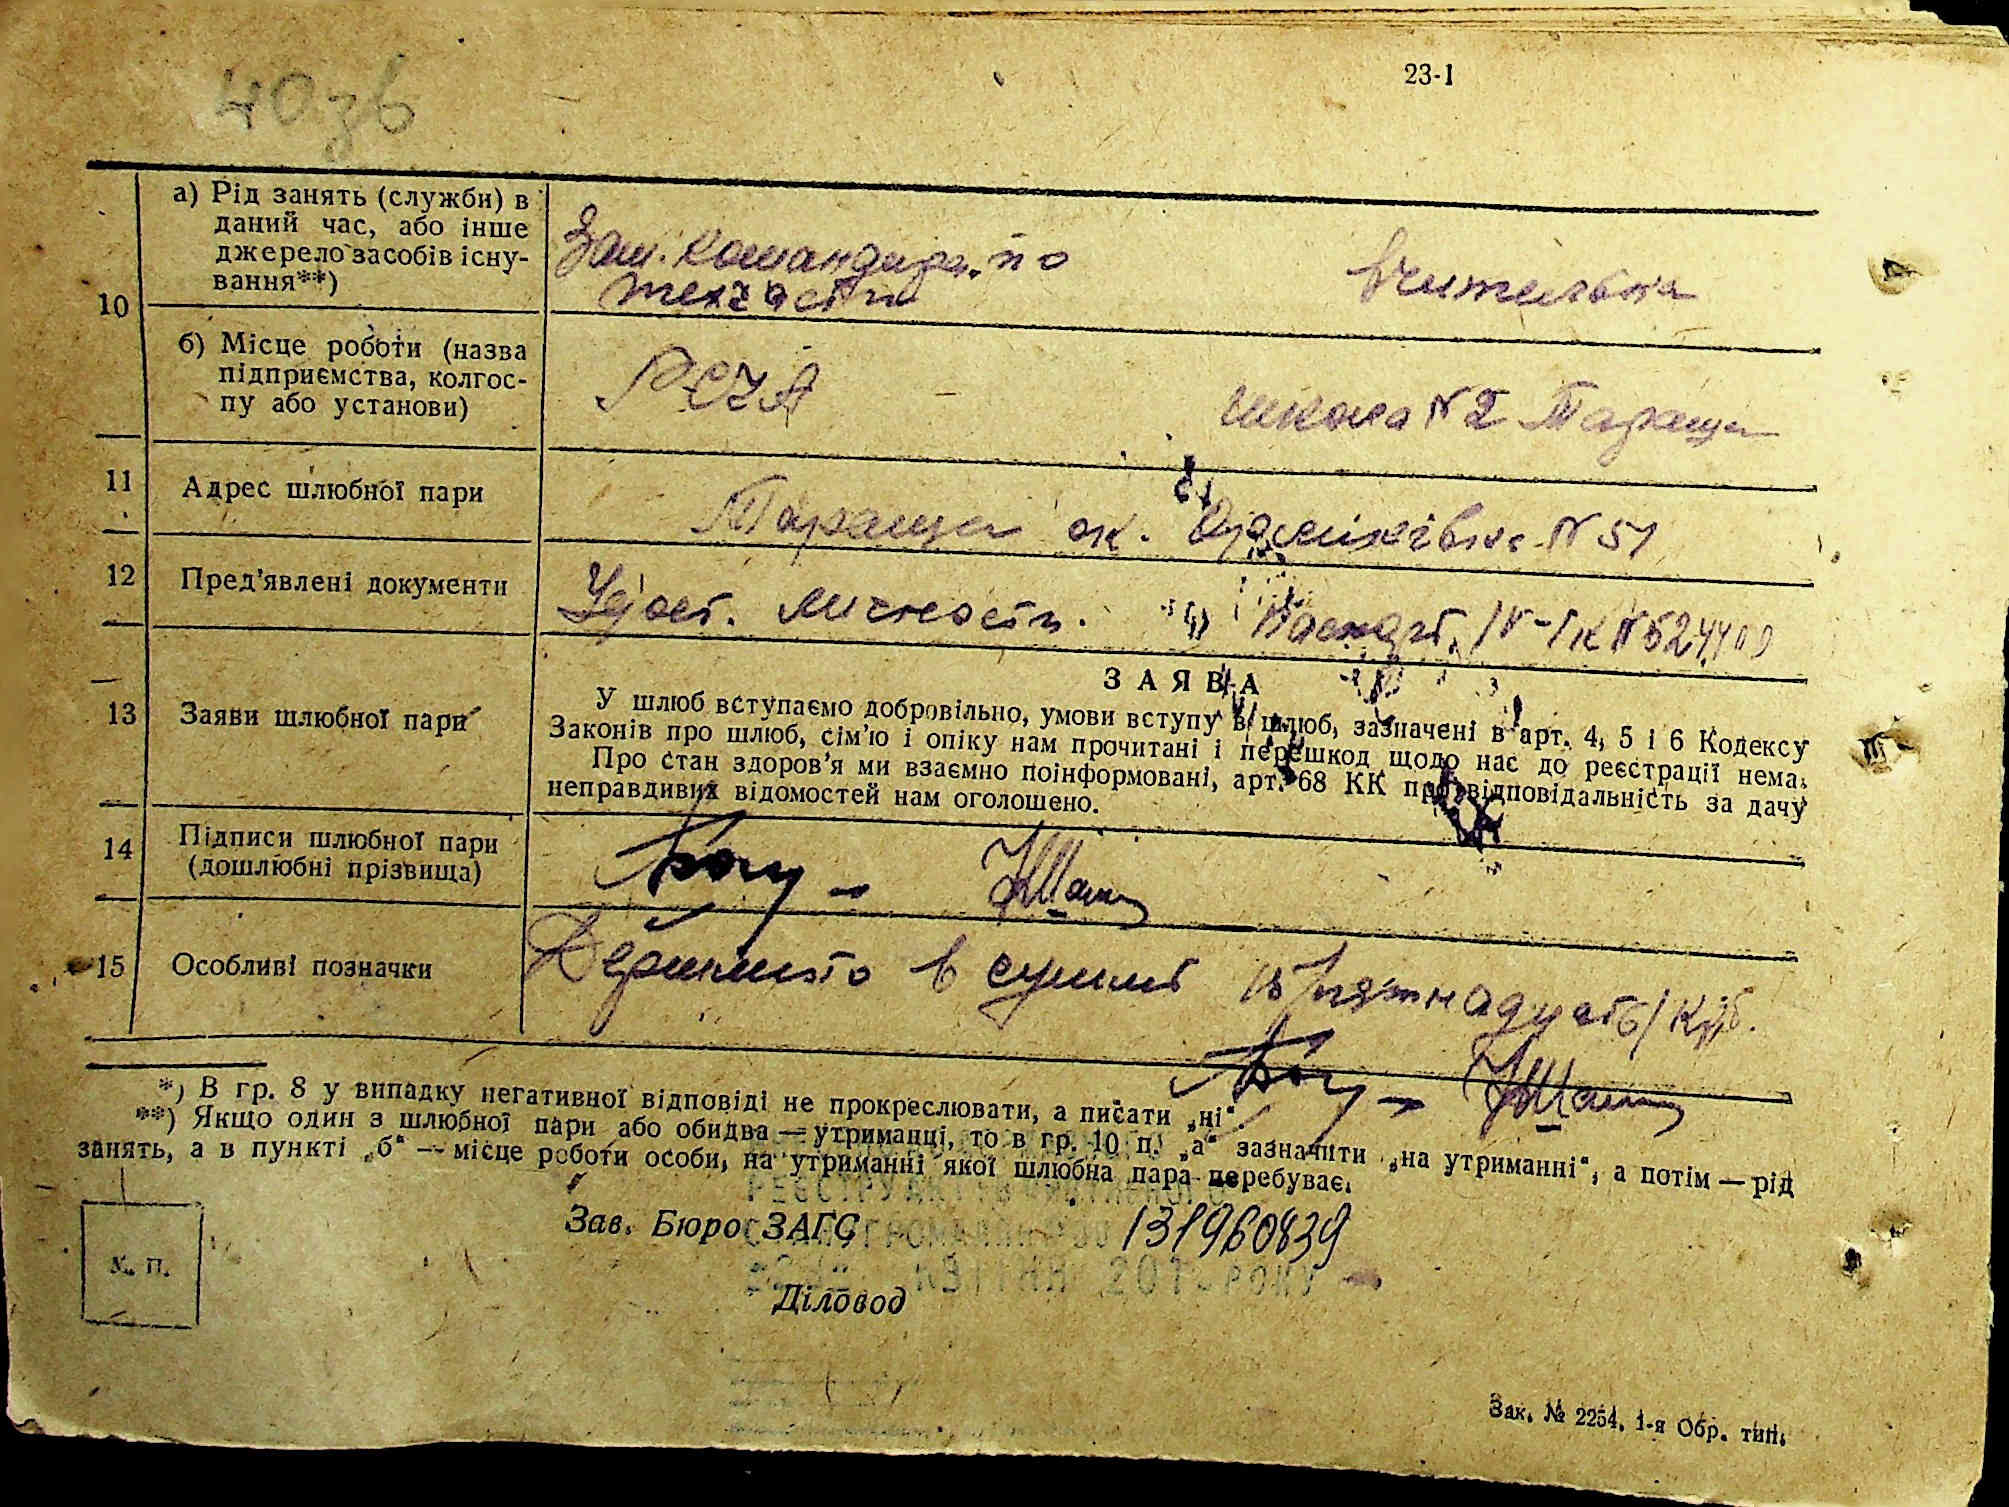 40 зв
23-1
10
а) Рід занять (служби) в
даний час, або інше
джерело засобів існу-
вання**)
Зам. командира по
техчасти
вчителька
б) Місце роботи (назва
підприємства, колгос-
пу або установи)
РСЧА
школа №2 Тараща
11
Адрес шлюбної пари
Тараща ок. №51
12
Пред'явлені документи
Удост. личности.
Паспорт.
13
Заяви шлюбної пари
ЗАЯВА
У шлюб вступаємо добровільно, умови вступу в шлюб, зазначені в арт. 4, 5 і 6 Кодексу
Законів про шлюб, сім'ю і опіку нам прочитані і перешкод щодо нас до реєстрації нема.
Про стан здоров'я ми взаємно поінформовані, арт. 68 КК про відповідальність за дачу
неправдивих відомостей нам оголошено.
14
Підписи шлюбної пари
(дошлюбні прізвища)
15
Особливі позначки
в сумме 15 /пятнадцать/ крб.
*) В гр. 8 у випадку негативної відповіді не прокреслювати, а писати „ні“.
**) Якщо один з шлюбної пари або обидва — утриманці, то в гр. 10 п. „а“ зазначити „на утриманні“, а потім — рід
занять, а в пункті „б“ — місце роботи особи, на утриманні якої шлюбна пара перебуває.
Зав. Бюро ЗАГС
131960839
М. П.
Діловод
Зак. № 2254, 1-я Обр. тип.